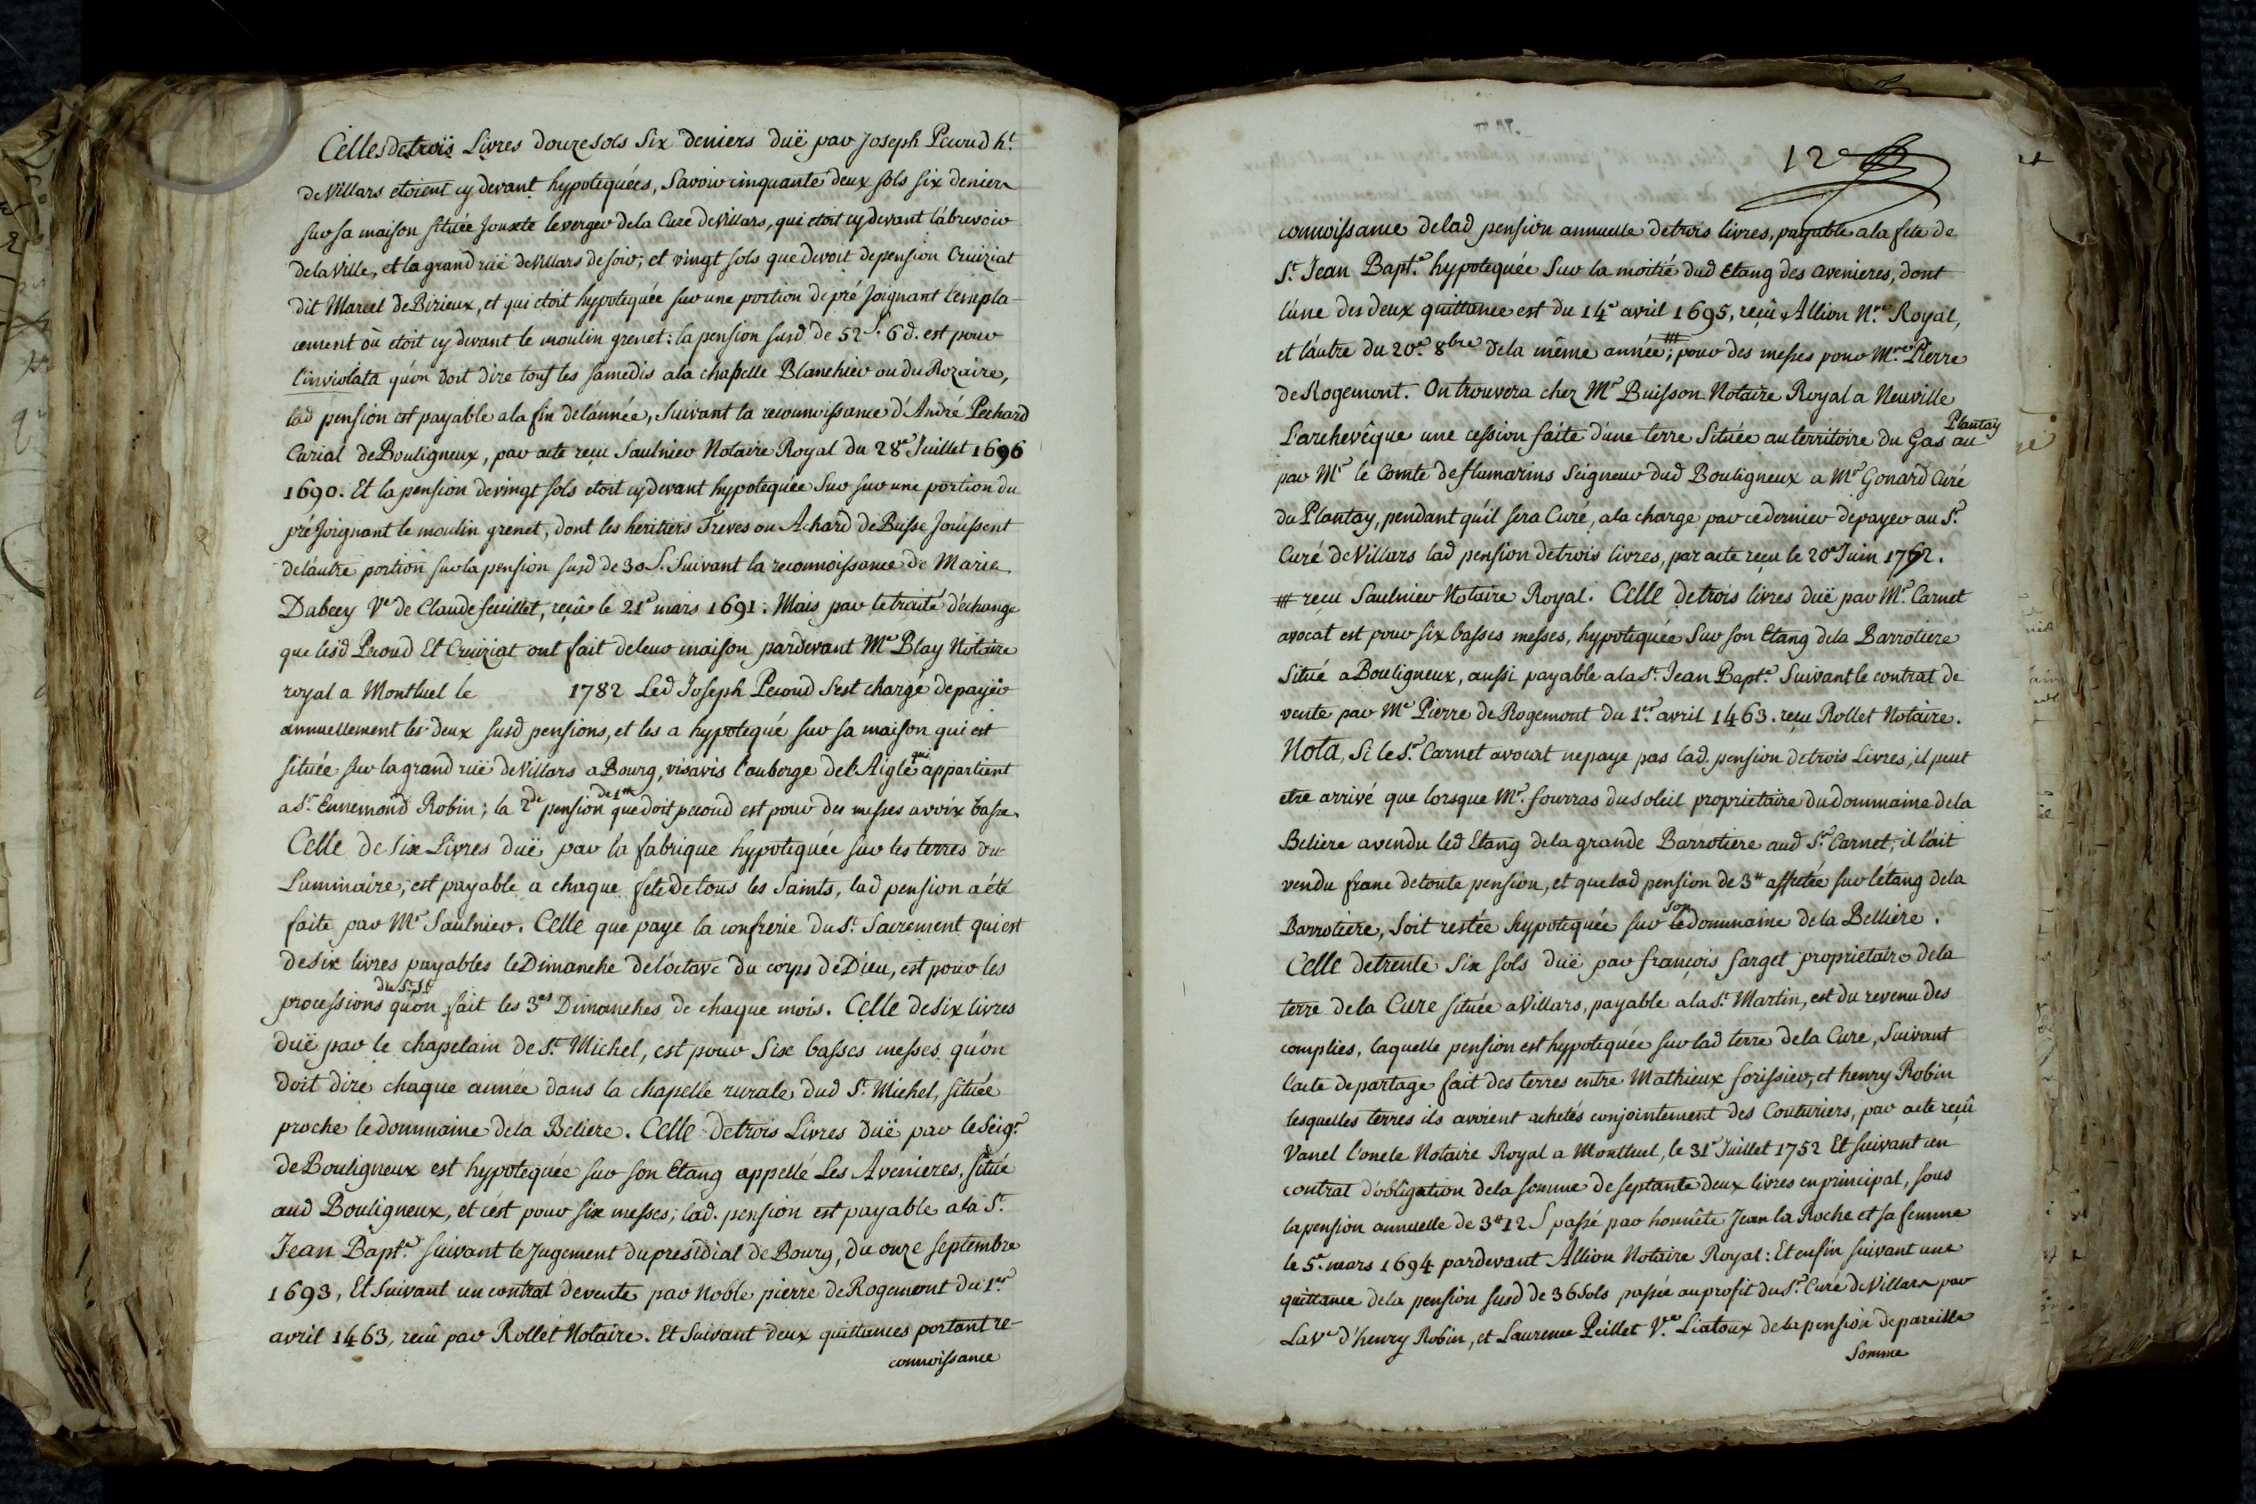 Celles de trois Livres douze sols Six deniers duë par Joseph Pecoud h.t
de Villars etoient cy devant hypotequées, Savoir cinquante deux sols six deniers
sur sa maison située Jouxte le verger de la Cure de Villars, qui etoit cy devant l'abrevoir
de la Ville, et la grand ruë de Villars de soir; et vingt sols que devoit de pension Cruiziat
dit Marcel de Birieux, et qui etoit hypotequée sur une portion de pré Joignant l'empla-
cement où etoit cy devant le moulin grenet: la pension susd. de 52 s. 6 d. est pour
l'inviolata qu'on doit dire tous les samedis a la chapelle Blanchier ou du Rozaire,
lad pension est payable a la fin de l'année, Suivant la reconnoissance d'André Pechard
Curial de Bouligneux, par acte reçu Saulnier Notaire Royal du 28.e Juillet 1696
1690. Et la pension de vingt sols etoit cy devant hypotequée Sur sur une portion du
pré Joignant le moulin grenet, dont les heritiers Treves ou Achard de Busse Jouissent
de l'autre portion sur la pension susd de 30 S. Suivant la reconnoissance de Marie
Dabcey V.e de Claude feuillet, reçûe le 21.e mars 1691. Mais par le traité d'echange
que lesd Pecoud Et Cruiziat ont fait de leur maison pardevant M.e Blay Notaire
royal a Montluel le 1782 Led Joseph Pecoud s'est chargé de payer
annuellement les deux susd pensions, et les a hypotequé sur sa maison qui est
située sur la grand ruë de Villars a Bourg, vis avis l'auberge de l'Aigle qui appartient
a S.r Ennemond Robin; la 2.de pension de 1.tt que doit pecoud est pour des messes a voix basse.
Celle de six Livres duë par la fabrique hypotequée sur les terres du
Luminaire, est payable a chaque fete de tous les Saints, lad pension a été
faite par M.r Saulnier. Celle que paye la confrerie du S.t Sacrement qui est
de six livres payables le Dimanche de l'octave du corps de Dieu, est pour les
processions du S.t S.t qu'on fait les 3.es Dimanches de chaque mois. Celle de six livres
duë par le chapelain de S.t Michel, est pour Six basses messes qu'on
doit dire chaque année dans la chapelle rurale dud S.t Michel, située
proche le dommaine de la Beliere. Celle de trois Livres duë par le Seig.r
de Bouligneux est hypotequée sur son Etang appellé Les Avenieres, situé
aud Bouligneux, et c'est pour six messes; lad. pension est payable a la S.t
Jean Bapt.e suivant le Jugement du presidial de Bourg, du onze septembre
1693, Et Suivant un contrat de vente par Noble pierre de Rogemont du 1.er
avril 1463, reçû par Rollet Notaire. Et Suivant deux quittances portant re-
connoissance
12.e
connoissance de lad pension annuelle de trois livres, payable a la fete de
S.t Jean Bapt.e hypotequée Sur la moitié dud Etang des avenieres, dont
l'une des deux quittance est du 14.e avril 1695, reçûe Allion N.re Royal,
et l'autre du 20.e 8bre de la même année; # pour des messes pour M.re Pierre
de Rogemont. On trouvera chez M.r Buisson Notaire Royal a Neuville
L'archevêque une cession faite d'une terre Située au territoire du Gas au Plantay
par M.r le Comte de flamarins Seigneur dud Bouligneux a M.r Gonard Curé
du Plantay, pendant qu'il sera Curé, a la charge par ce dernier de payer au S.r
Curé de Villars lad pension de trois livres, par acte reçu le 20.e Juin 1762.
# reçu Saulnier Notaire Royal. Celle de trois livres duë par M.r Carnet
avocat est pour six basses messes, hypotequée Sur son Etang de la Barrotiere
Situé a Bouligneux, aussi payable a la S.t Jean Bapt.e Suivant le contrat de
vente par M.e Pierre de Rogemont du 1.er avril 1463. reçu Rollet Notaire.
Nota, Si le S.r Carnet avocat ne paye pas lad. pension de trois Livres, il peut
etre arrivé que lorsque M.r fourras du soleil proprietaire du dommaine de la
Beliere a vendu led Etang de la grande Barrotiere aud S.r Carnet, il l'ait
vendu franc de toute pension, et que lad pension de 3 tt affectée sur l'étang de la
Barrotiere, soit restée hypotequée sur son le dommaine de la Belliere.
Celle de trente Six sols duë par françois farget proprietaire de la
terre de la Cure située a Villars, payable a la S.t Martin, est du revenu des
complies, laquelle pension est hypotequée sur lad terre de la Cure, Suivant
l'acte de partage fait des terres entre Mathieux forissier, et henry Robin
lesquelles terres ils avoient achetés conjointement des Couturiers, par acte reçû
Vanel l'oncle Notaire Royal a Montluel, le 31.e Juillet 1752 Et suivant un
contrat d'obligation de la somme de septante deux livres en principal, sous
la pension annuelle de 3 tt 12 S passé par honnête Jean la Roche et sa femme
le 5.e mars 1694 pardevant Allion Notaire Royal: Et enfin suivant une
quittance de la pension susd de 36 Sols passée au profit du S.r Curé de Villars par
La V.e d'henry Robin, et Laurence Peillet V.ve Liatoux de la pension de pareille
Somme